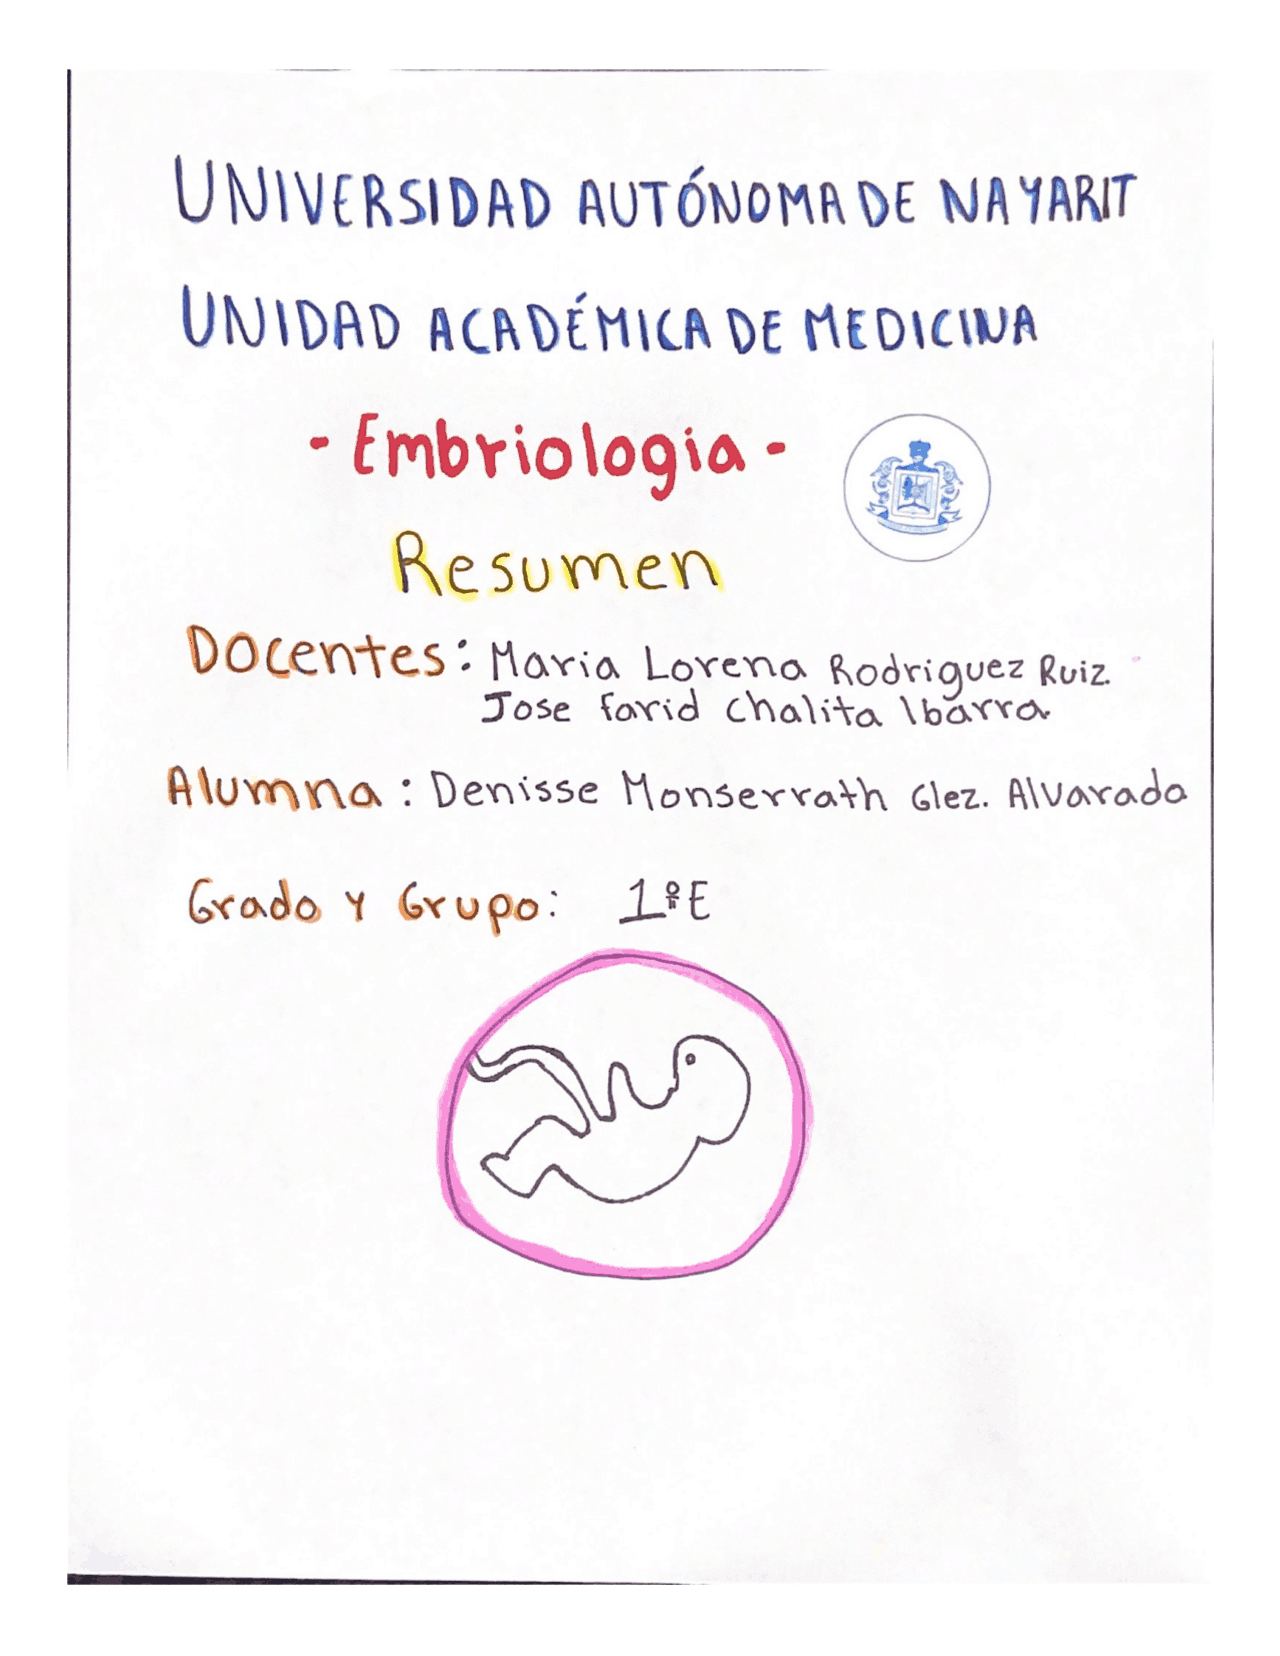 UNIVERSIDAD AUTÓNOMA DE NAYARIT
UNIDAD ACADÉMICA DE MEDICINA
- Embriologia -
Resumen
Docentes: Maria Lorena Rodriguez Ruiz.
Jose farid Chalita Ibarra.
Alumna: Denisse Monserrath Glez. Alvarado
Grado y Grupo: 1ºE